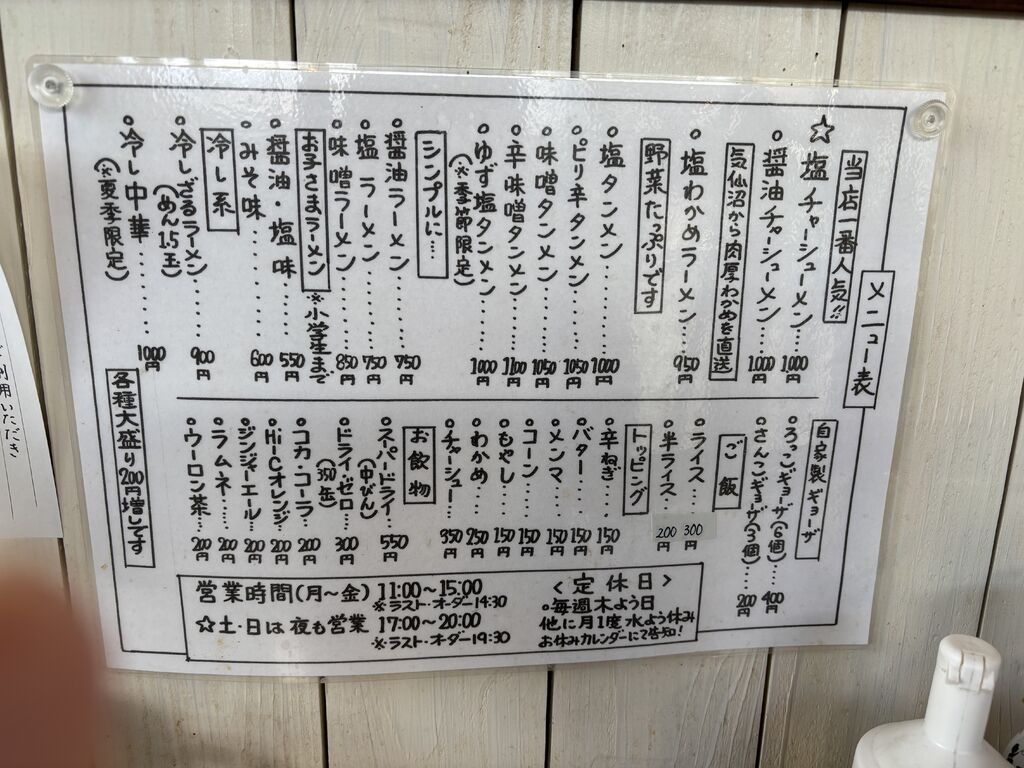 メニュー表
当店一番人気!!
☆塩チャーシューメン……1,000円
醤油チャーシューメン……1,000円
気仙沼から肉厚わかめを直送
塩わかめラーメン……950円
野菜たっぷりです
塩タンメン……1,000円
ピリ辛タンメン……1050円
味噌タンメン……1050円
辛味噌タンメン……1100円
ゆず塩タンメン……1000円
(※季節限定)
シンプルに…
醤油ラーメン……750円
塩ラーメン……750円
味噌ラーメン……850円
お子さまラーメン ※小学生まで
醤油・塩味……550円
みそ味……600円
冷し系
冷しざるラーメン……900円
(めん1.5玉)
冷し中華……1000円
(※夏季限定)
自家製ギョーザ
ろっこギョーザ(6個)……400円
さんこギョーザ(3個)……200円
ご飯
ライス……300円
半ライス……200円
トッピング
辛ねぎ……150円
バター……150円
メンマ……150円
コーン……150円
もやし……150円
わかめ……250円
チャーシュー……350円
お飲物
スーパードライ……550円
(中びん)
ドライ・ゼロ……300円
(350缶)
コカ・コーラ……200円
Hi-Cオレンジ……200円
ジンジャーエール……200円
ラムネ……200円
ウーロン茶……200円
各種大盛り200円増しです
営業時間(月〜金) 11:00〜15:00
※ラスト・オーダー14:30
☆土・日は夜も営業 17:00〜20:00
※ラスト・オーダー19:30
<定休日>
毎週木よう日
他に月1度水よう休み
お休みカレンダーにて告知!
用いただき